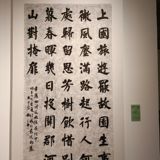 上國旅遊罷故園生事
微風塵滿路起行人何
處歸留思芳樹飲惜別
暮春暉幾日投關郡河
山對掩扉